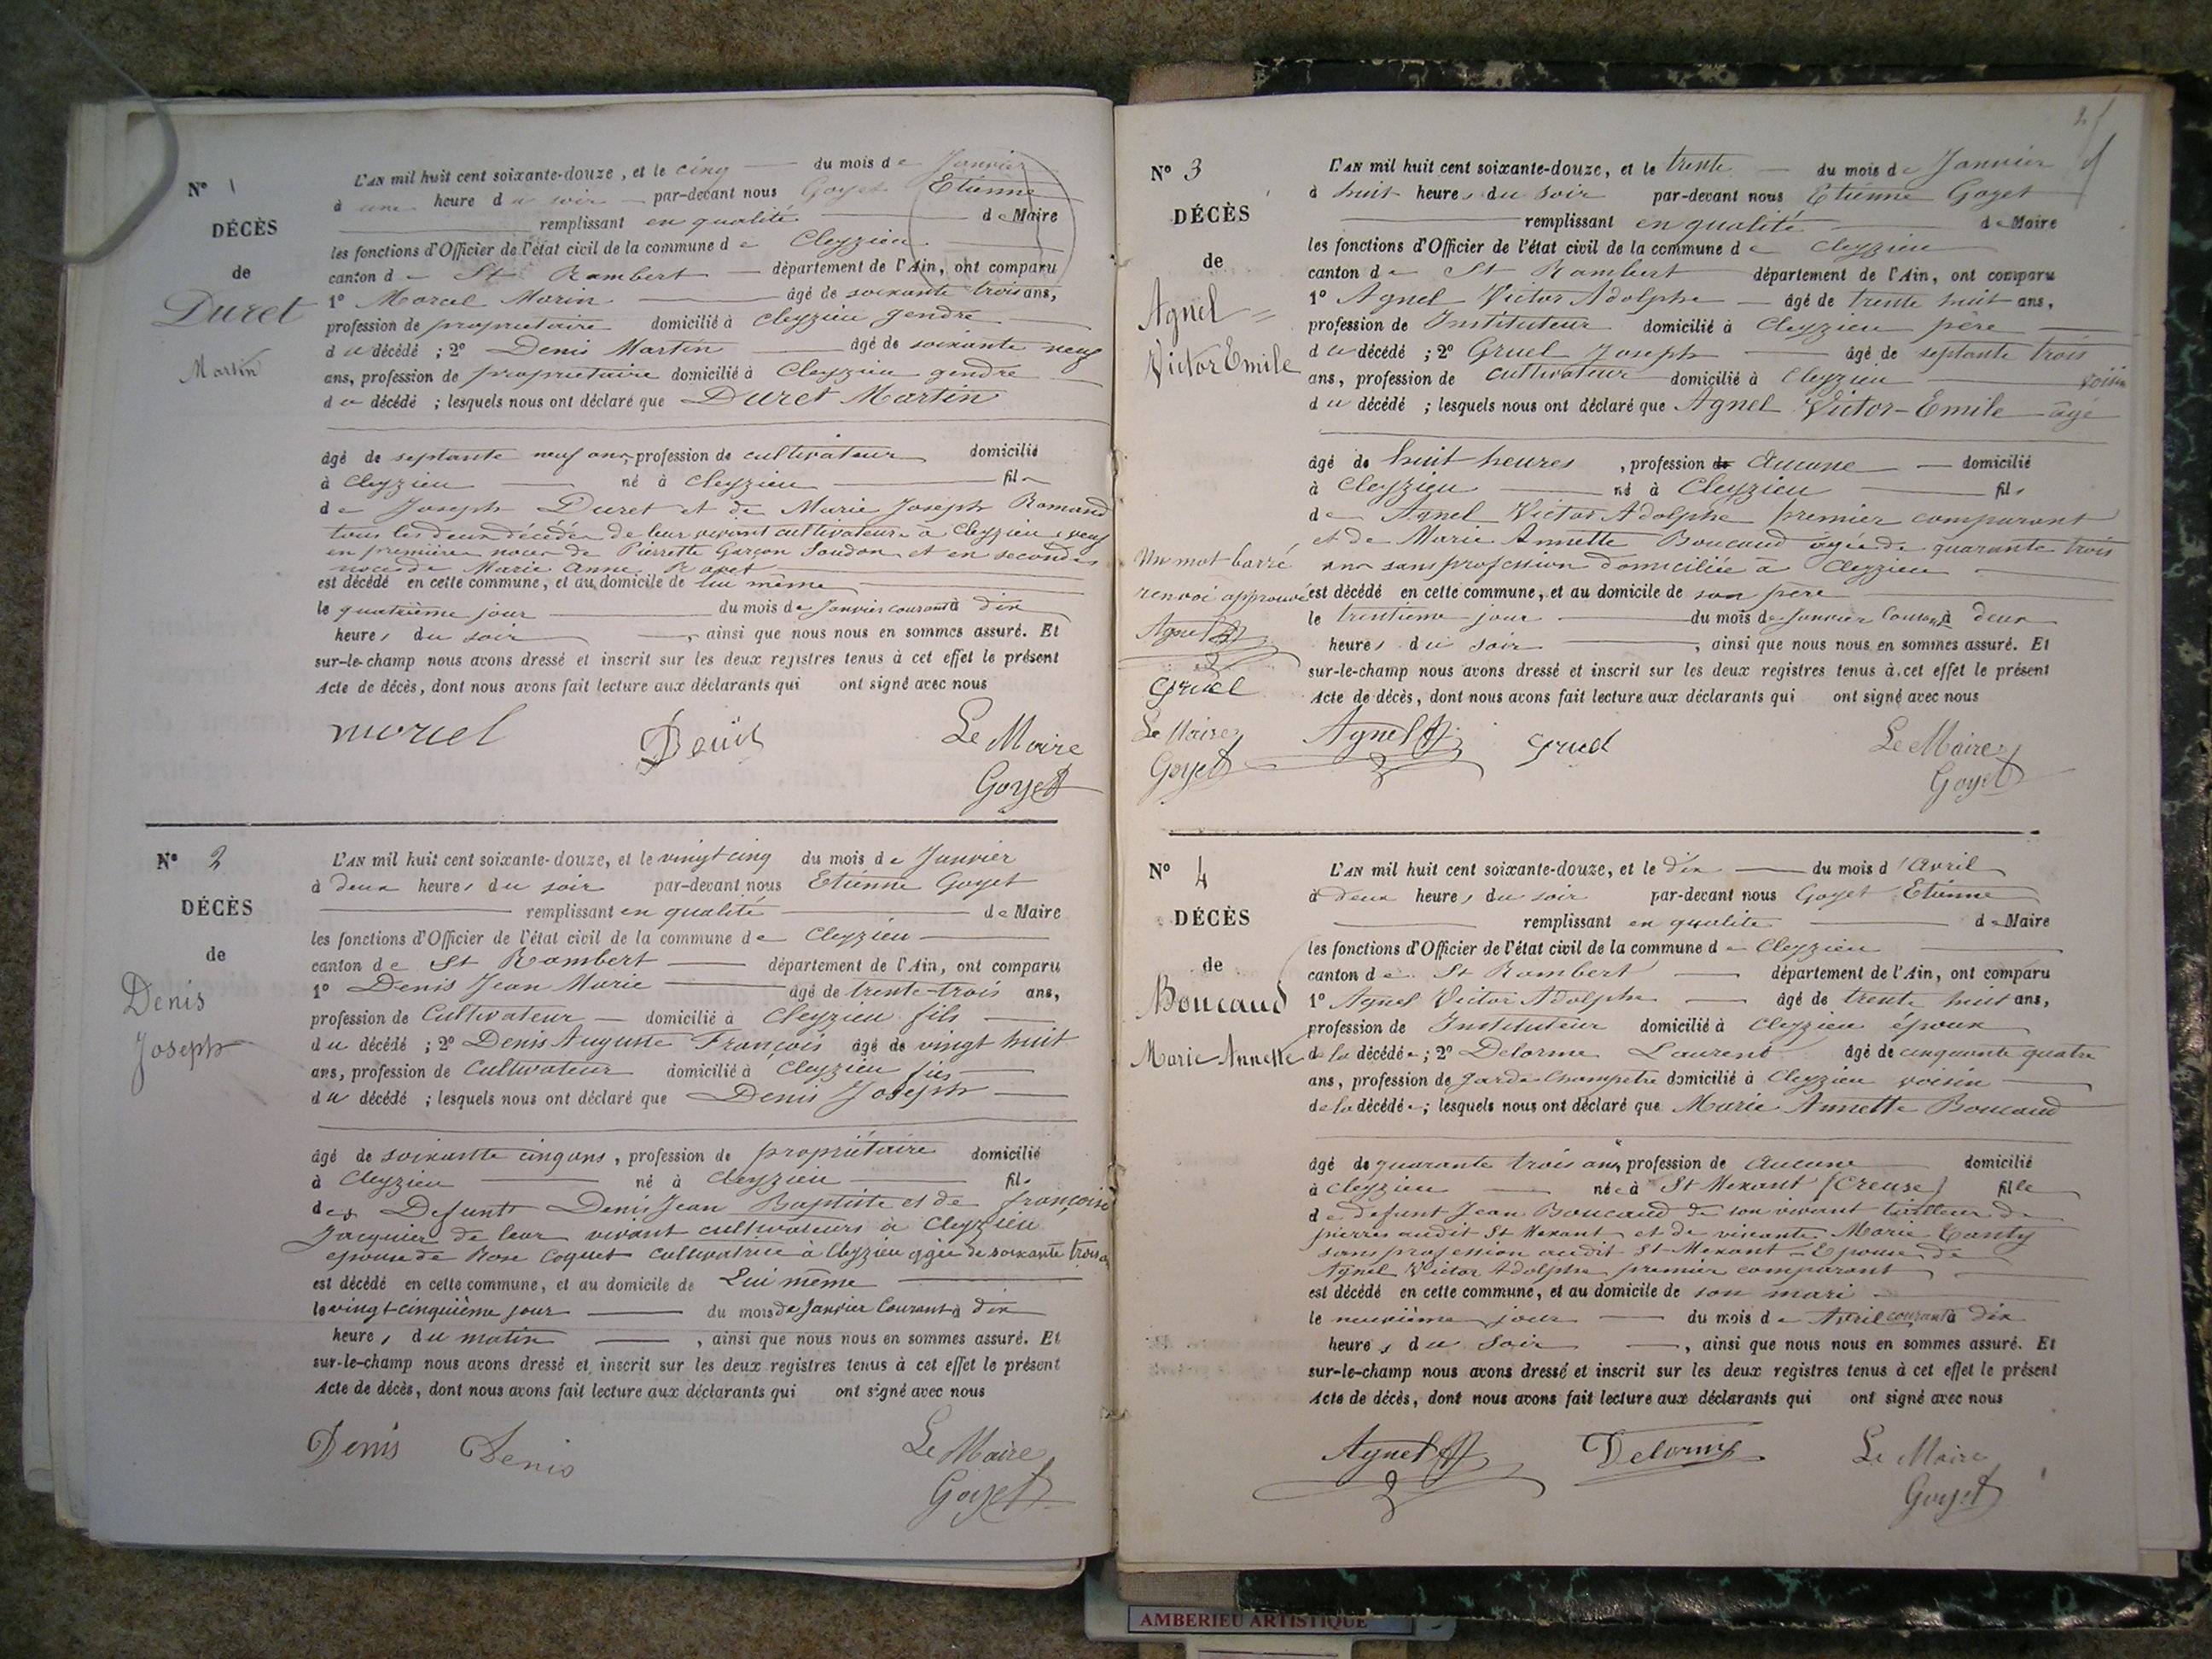 N° 1
DÉCÈS
de
Duret
Martin
L'AN mil huit cent soixante-douze, et le cinq du mois de Janvier
à une heure du soir par-devant nous Goyet Etienne
remplissant en qualité de Maire
les fonctions d'Officier de l'état civil de la commune de Cleyzieu
canton de St Rambert département de l'Ain, ont comparu
1° Morcel Marin âgé de soixante trois ans,
profession de propriétaire domicilié à Cleyzieu gendre
du décédé ; 2° Denis Martin âgé de soixante neuf
ans, profession de propriétaire domicilié à Cleyzieu gendre
du décédé ; lesquels nous ont déclaré que Duret Martin
âgé de septante neuf ans, profession de cultivateur domicilié
à Cleyzieu né à Cleyzieu fils
de Joseph Duret et de Marie Joseph Romand
tous les deux décédés de leur vivant cultivateurs à Cleyzieu, veuf
en premières noces de Pierrette Garçon Soudon et en secondes
noces de Marie Anne
est décédé en cette commune, et au domicile de lui même
le quatrième jour du mois de Janvier courant à dix
heures du soir, ainsi que nous nous en sommes assuré. Et
sur-le-champ nous avons dressé et inscrit sur les deux registres tenus à cet effet le présent
Acte de décès, dont nous avons fait lecture aux déclarants qui ont signé avec nous
morcel Denis Le Maire
Goyet
N° 2
DÉCÈS
de
Denis
Joseph
L'AN mil huit cent soixante-douze, et le vingt cinq du mois de Janvier
à deux heures du soir par-devant nous Etienne Goyet
remplissant en qualité de Maire
les fonctions d'Officier de l'état civil de la commune de Cleyzieu
canton de St Rambert département de l'Ain, ont comparu
1° Denis Jean Marie âgé de trente-trois ans,
profession de Cultivateur domicilié à Cleyzieu fils
du décédé ; 2° Denis Auguste François âgé de vingt huit
ans, profession de Cultivateur domicilié à Cleyzieu fils
du décédé ; lesquels nous ont déclaré que Denis Joseph
âgé de soixante cinq ans, profession de propriétaire domicilié
à Cleyzieu né à Cleyzieu fils
des Defunts Denis Jean Baptiste et de françoise
Jacquier de leur vivant cultivateurs à Cleyzieu
epoux de Rose Coquet cultivatrice à Cleyzieu agée de soixante trois a
est décédé en cette commune, et au domicile de Lui même
le vingt cinquième jour du mois de Janvier Courant à dix
heures du matin, ainsi que nous nous en sommes assuré. Et
sur-le-champ nous avons dressé et inscrit sur les deux registres tenus à cet effet le présent
Acte de décès, dont nous avons fait lecture aux déclarants qui ont signé avec nous
Denis Denis Le Maire
Goyet
N° 3
DÉCÈS
de
Agnel
Victor Emile
L'AN mil huit cent soixante-douze, et le trente du mois de Janvier
à huit heures du soir par-devant nous Etienne Goyet
remplissant en qualité de Maire
les fonctions d'Officier de l'état civil de la commune de Cleyzieu
canton de St Rambert département de l'Ain, ont comparu
1° Agnel Victor Adolphe âgé de trente huit ans,
profession de Instituteur domicilié à Cleyzieu père
du décédé ; 2° Gruel Joseph âgé de septante trois
ans, profession de cultivateur domicilié à Cleyzieu voisin
du décédé ; lesquels nous ont déclaré que Agnel Victor-Emile âgé
âgé de huit heures, profession de Aucune domicilié
à Cleyzieu né à Cleyzieu fils
de Agnel Victor Adolphe premier comparant
et de Marie Annette Boucaud agée de quarante trois
ans sans profession domiciliée à Cleyzieu
est décédé en cette commune, et au domicile de son père
le trentième jour du mois de Janvier Courant à deux
heures du soir, ainsi que nous nous en sommes assuré. Et
sur-le-champ nous avons dressé et inscrit sur les deux registres tenus à cet effet le présent
Acte de décès, dont nous avons fait lecture aux déclarants qui ont signé avec nous
Un mot barré
renvoi approuvé
Agnel
Gruel
Le Maire
Goyet
Agnel Gruel Le Maire
Goyet
N° 4
DÉCÈS
de
Boucaud
Marie Annette
L'AN mil huit cent soixante-douze, et le dix du mois d'Avril
à deux heures du soir par-devant nous Goyet Etienne
remplissant en qualité de Maire
les fonctions d'Officier de l'état civil de la commune de Cleyzieu
canton de St Rambert département de l'Ain, ont comparu
1° Agnel Victor Adolphe âgé de trente huit ans,
profession de Instituteur domicilié à Cleyzieu époux
de la décédée ; 2° Delorme Laurent âgé de cinquante quatre
ans, profession de garde Champetre domicilié à Cleyzieu voisin
de la décédée ; lesquels nous ont déclaré que Marie Annette Boucaud
âgé de quarante trois ans, profession de Aucune domicilié
à Cleyzieu née à St Mexant (Creuse) fille
de defunt Jean Boucaud de son vivant tailleur de
pierres audit St Mexant et de vivante Marie Canty
sans profession audit St Mexant - Epouse de
Agnel Victor Adolphe premier comparant
est décédé en cette commune, et au domicile de son mari
le neuvième jour du mois de Avril courant à dix
heures du soir, ainsi que nous nous en sommes assuré. Et
sur-le-champ nous avons dressé et inscrit sur les deux registres tenus à cet effet le présent
Acte de décès, dont nous avons fait lecture aux déclarants qui ont signé avec nous
Agnel Delorme Le Maire
Goyet
AMBERIEU ARTISTIQUE